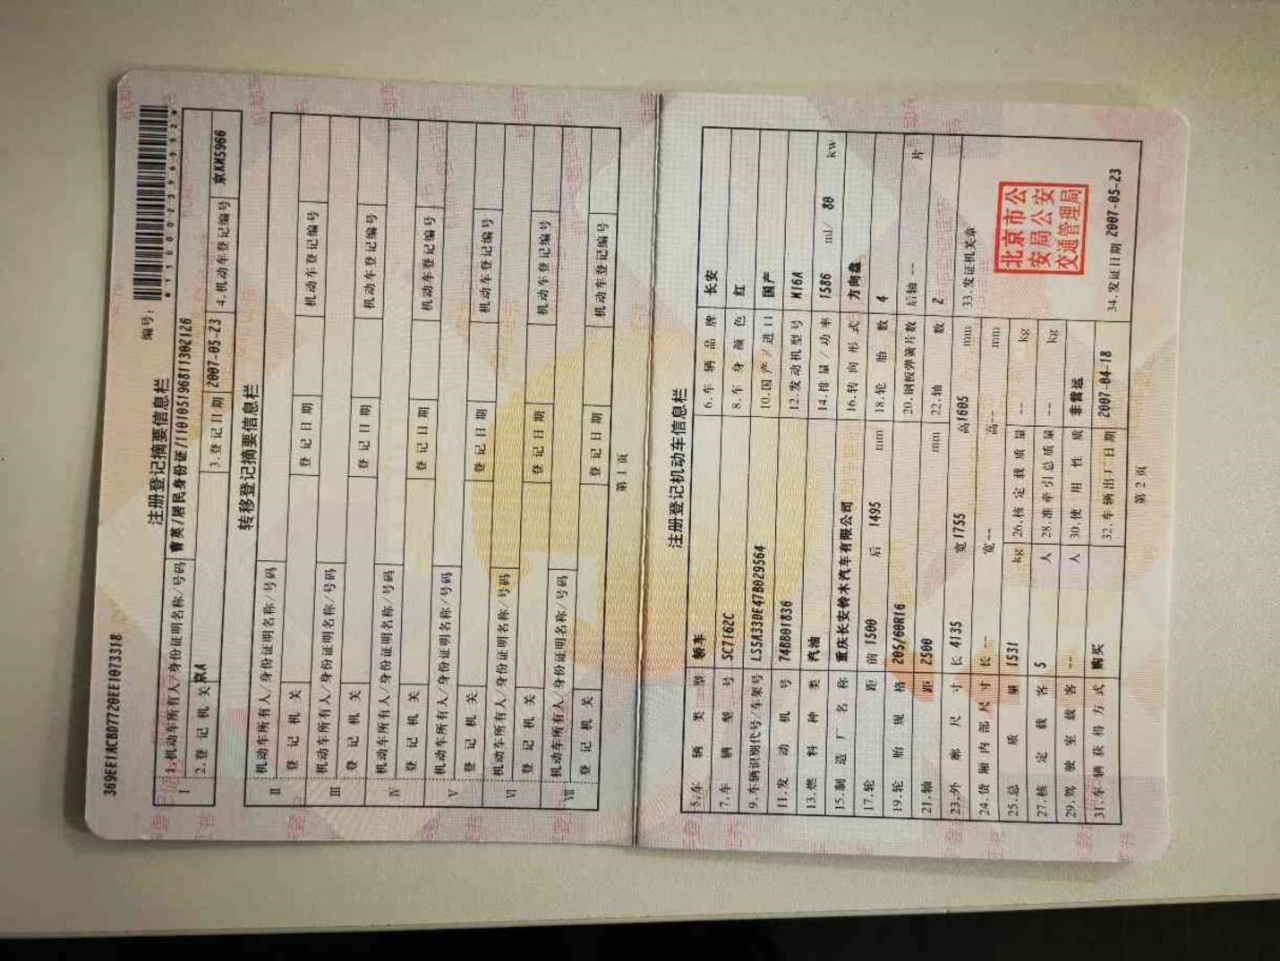 369EE1ACBD7720EE1073318
编号:
注册登记摘要信息栏
I 1.机动车所有人/身份证明名称/号码 曹英/居民身份证/110105196811302126
2.登记机关 京A 3.登记日期 2007-05-23 4.机动车登记编号 京KM5966
转移登记摘要信息栏
II 机动车所有人/身份证明名称/号码
登记机关 登记日期 机动车登记编号
III 机动车所有人/身份证明名称/号码
登记机关 登记日期 机动车登记编号
IV 机动车所有人/身份证明名称/号码
登记机关 登记日期 机动车登记编号
V 机动车所有人/身份证明名称/号码
登记机关 登记日期 机动车登记编号
VI 机动车所有人/身份证明名称/号码
登记机关 登记日期 机动车登记编号
VII 机动车所有人/身份证明名称/号码
登记机关 登记日期 机动车登记编号
第1页
注册登记机动车信息栏
5.车辆类型 轿车 6.车辆品牌 长安
7.车辆型号 SC7162C 8.车身颜色 红
9.车辆识别代号/车架号 LS5A33DE47B029564 10.国产/进口 国产
11.发动机号 74BB01836 12.发动机型号 M16A
13.燃料种类 汽油 14.排量/功率 1586 ml/ 80 kw
15.制造厂名称 重庆长安铃木汽车有限公司 16.转向形式 方向盘
17.轮距 前 1500 后 1495 mm 18.轮胎数 4
19.轮胎规格 205/60R16 20.钢板弹簧片数 后轴 -- 片
21.轴距 2500 mm 22.轴数 2
23.外廓尺寸 长 4135 宽 1755 高 1605 mm 33.发证机关章
24.货厢内部尺寸 长 -- 宽 -- 高 -- mm
25.总质量 1531 kg 26.核定载质量 -- kg
27.核定载客 5 人 28.准牵引总质量 -- kg
29.驾驶室载客 -- 人 30.使用性质 非营运
31.车辆获得方式 购买 32.车辆出厂日期 2007-04-18 34.发证日期 2007-05-23
北京市公
安局公安
交通管理局
第2页